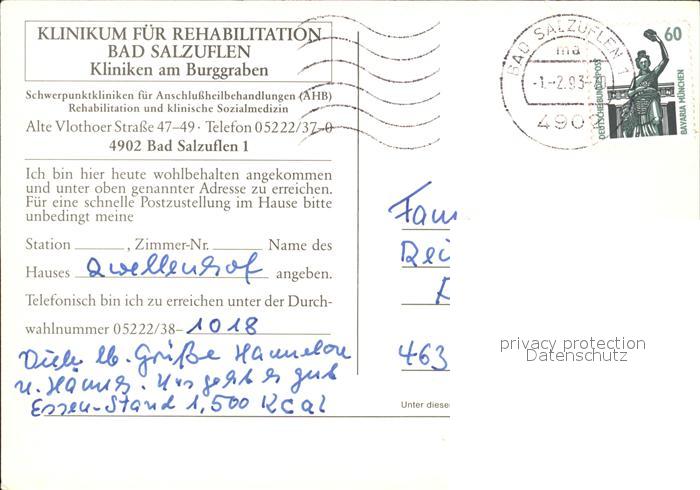 KLINIKUM FÜR REHABILITATION
BAD SALZUFLEN
Kliniken am Burggraben
Schwerpunktkliniken für Anschlußheilbehandlungen (AHB)
Rehabilitation und klinische Sozialmedizin
Alte Vlothoer Straße 47–49 · Telefon 05222/37-0
4902 Bad Salzuflen 1
Ich bin hier heute wohlbehalten angekommen
und unter oben genannter Adresse zu erreichen.
Für eine schnelle Postzustellung im Hause bitte
unbedingt meine
Station , Zimmer-Nr. Name des
Hauses Quellenhof angeben.
Telefonisch bin ich zu erreichen unter der Durch-
wahlnummer 05222/38– 1018
Viele lb. Grüße Hannelore
u. Hannes. Uns geht es gut
Essen-Stand 1,500 Kcal
BAD SALZUFLEN 1
ma
-1.-2.93
490
60
DEUTSCHE BUNDESPOST
BAVARIA MÜNCHEN
Fam
Rei
463
Unter diese
privacy protection
Datenschutz